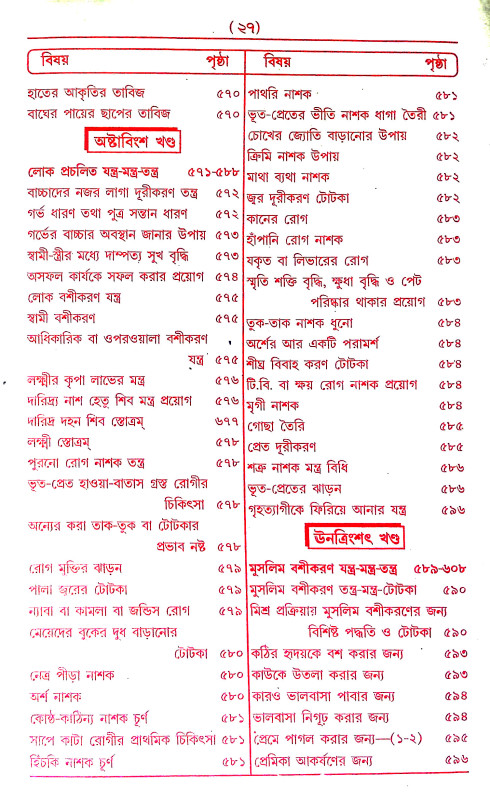 (২৭)
বিষয় পৃষ্ঠা
হাতের আকৃতির তাবিজ ৫৭০
বাঘের পায়ের ছাপের তাবিজ ৫৭০
অষ্টাবিংশ খণ্ড
লোক প্রচলিত যন্ত্র-মন্ত্র-তন্ত্র ৫৭১-৫৮৮
বাচ্চাদের নজর লাগা দূরীকরণ তন্ত্র ৫৭২
গর্ভ ধারণ তথা পুত্র সন্তান ধারণ ৫৭২
গর্ভের বাচ্চার অবস্থান জানার উপায় ৫৭৩
স্বামী-স্ত্রীর মধ্যে দাম্পত্য সুখ বৃদ্ধি ৫৭৩
অসফল কার্যকে সফল করার প্রয়োগ ৫৭৪
লোক বশীকরণ যন্ত্র ৫৭৫
স্বামী বশীকরণ ৫৭৫
আধিকারিক বা ওপরওয়ালা বশীকরণ
যন্ত্র ৫৭৫
লক্ষ্মীর কৃপা লাভের মন্ত্র ৫৭৬
দারিদ্র্য নাশ হেতু শিব মন্ত্র প্রয়োগ ৫৭৬
দারিদ্র দহন শিব স্তোত্রম্ ৬৭৭
লক্ষ্মী স্তোত্রম্ ৫৭৮
পুরনো রোগ নাশক তন্ত্র ৫৭৮
ভূত-প্রেত হাওয়া-বাতাস গ্রস্ত রোগীর
চিকিৎসা ৫৭৮
অন্যের করা তাক-তুক বা টোটকার
প্রভাব নষ্ট ৫৭৮
রোগ মুক্তির ঝাড়ন ৫৭৯
পালা জ্বরের টোটকা ৫৭৯
ন্যাবা বা কামলা বা জন্ডিস রোগ ৫৭৯
মেয়েদের বুকের দুধ বাড়ানোর
টোটকা ৫৮০
নেত্র পীড়া নাশক ৫৮০
অর্শ নাশক ৫৮০
কোষ্ঠ-কাঠিন্য নাশক চূর্ণ ৫৮১
সাপে কাটা রোগীর প্রাথমিক চিকিৎসা ৫৮১
হিঁচকি নাশক চূর্ণ ৫৮১
বিষয় পৃষ্ঠা
পাথরি নাশক ৫৮১
ভূত-প্রেতের ভীতি নাশক ধাগা তৈরী ৫৮১
চোখের জ্যোতি বাড়ানোর উপায় ৫৮২
ক্রিমি নাশক উপায় ৫৮২
মাথা ব্যথা নাশক ৫৮২
জ্বর দূরীকরণ টোটকা ৫৮২
কানের রোগ ৫৮৩
হাঁপানি রোগ নাশক ৫৮৩
যকৃত বা লিভারের রোগ ৫৮৩
স্মৃতি শক্তি বৃদ্ধি, ক্ষুধা বৃদ্ধি ও পেট
পরিষ্কার থাকার প্রয়োগ ৫৮৩
তুক-তাক নাশক ধুনো ৫৮৪
অর্শের আর একটি পরামর্শ ৫৮৪
শীঘ্র বিবাহ করণ টোটকা ৫৮৪
টি.বি. বা ক্ষয় রোগ নাশক প্রয়োগ ৫৮৪
মৃগী নাশক ৫৮৪
গোছা তৈরি ৫৮৫
প্রেত দূরীকরণ ৫৮৫
শত্রু নাশক মন্ত্র বিধি ৫৮৬
ভূত-প্রেতের ঝাড়ন ৫৮৬
গৃহত্যাগীকে ফিরিয়ে আনার যন্ত্র ৫৯৬
ঊনত্রিংশৎ খণ্ড
মুসলিম বশীকরণ যন্ত্র-মন্ত্র-তন্ত্র ৫৮৯-৬০৮
মুসলিম বশীকরণ তন্ত্র-মন্ত্র-টোটকা ৫৯০
মিশ্র প্রক্রিয়ায় মুসলিম বশীকরণের জন্য
বিশিষ্ট পদ্ধতি ও টোটকা ৫৯০
কঠির হৃদয়কে বশ করার জন্য ৫৯৩
কাউকে উতলা করার জন্য ৫৯৩
কারও ভালবাসা পাবার জন্য ৫৯৪
ভালবাসা নিগূঢ় করার জন্য ৫৯৪
প্রেমে পাগল করার জন্য—(১-২) ৫৯৫
প্রেমিকা আকর্ষণের জন্য ৫৯৬